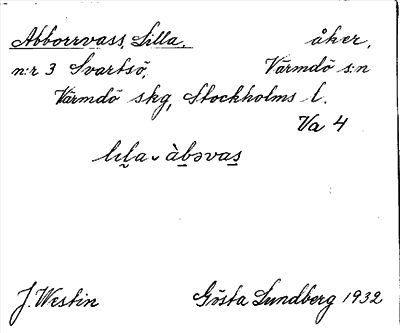 Abborrvass, Lilla, åker,
n:r 3 Svartsö, Värmdö s:n
Värmdö skg, Stockholms l.
Va 4
lıl̬a ˬ àb̲əvas̲
J. Westin Gösta Lundberg 1932